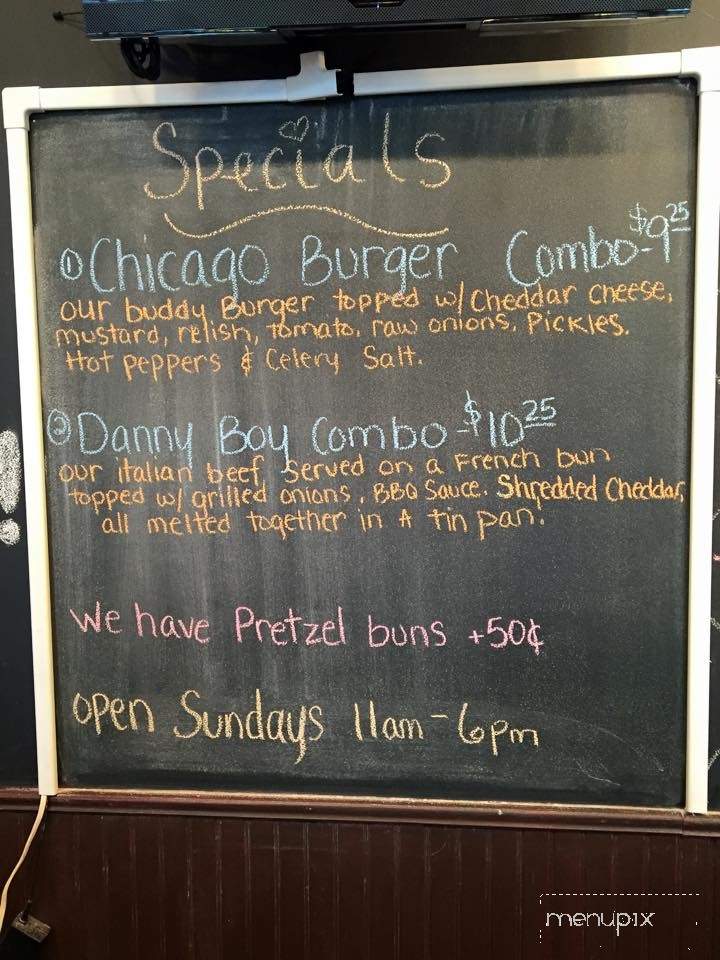 Specials
① Chicago Burger Combo-$9²⁵
our buddy Burger topped w/ Cheddar cheese,
mustard, relish, tomato, raw onions, Pickles.
Hot peppers & Celery Salt.
② Danny Boy Combo-$10²⁵
our italian beef, served on a French bun
topped w/ grilled onions, BBQ Sauce. Shredded Cheddar,
all melted together in A tin pan.
We have Pretzel buns +50¢
open Sundays 11am-6pm
menupix